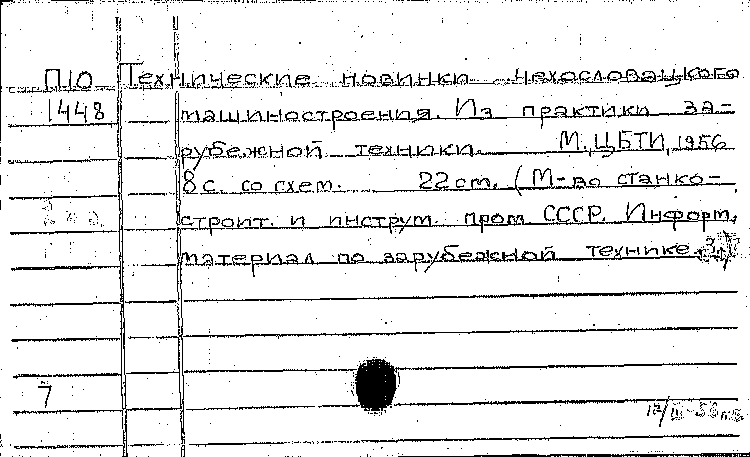 П10 Технические новинки чехословацкого
1448 машиностроения. Из практики за-
рубежной техники. М., ЦБТИ, 1956
8 с. со схем. 22 cm. (М-во станко-
строит. и инструм. пром. СССР. Информ.
материал по зарубежной технике
7